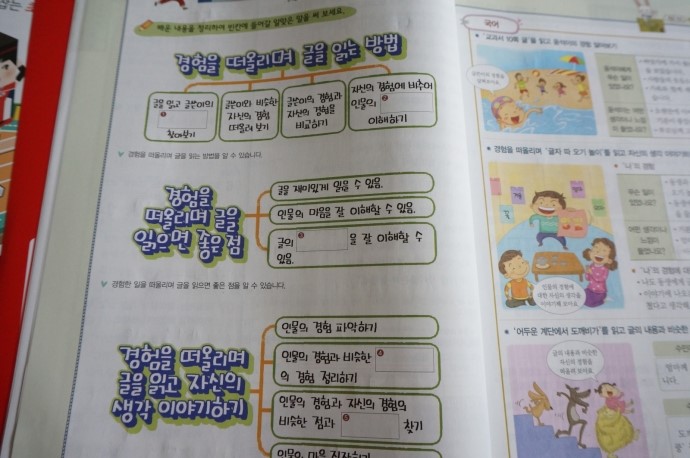 배운 내용을 정리하여 빈칸에 들어갈 알맞은 말을 써 보세요.
경험을 떠올리며 글을 읽는 방법
글을 읽고 글쓴이의
❶
찾아보기
글쓴이와 비슷한
자신의 경험
떠올려 보기
글쓴이의 경험과
자신의 경험을
비교하기
자신의 경험에 비추어
인물의 ❷
이해하기
경험을 떠올리며 글을 읽는 방법을 알 수 있습니다.
경험을
떠올리며 글을
읽으면 좋은 점
글을 재미있게 읽을 수 있음.
인물의 마음을 잘 이해할 수 있음.
글의 ❸ 을 잘 이해할 수
있음.
경험한 일을 떠올리며 글을 읽으면 좋은 점을 알 수 있습니다.
경험을 떠올리며
글을 읽고 자신의
생각 이야기하기
인물의 경험 파악하기
인물의 경험과 비슷한 ❹
의 경험 정리하기
인물의 경험과 자신의 경험의
비슷한 점과 ❺ 찾기
국어
경험을 떠올리며
를 읽고 자신의
'나'의 경험
인물의 경험에
대한 자신의 생각을
이야기해 보아요
'어두운 계단에서 도깨비가'를 읽고 글의 내용과 비슷한
글의 내용과 비슷한
자신의 경험을
떠올려 보아요